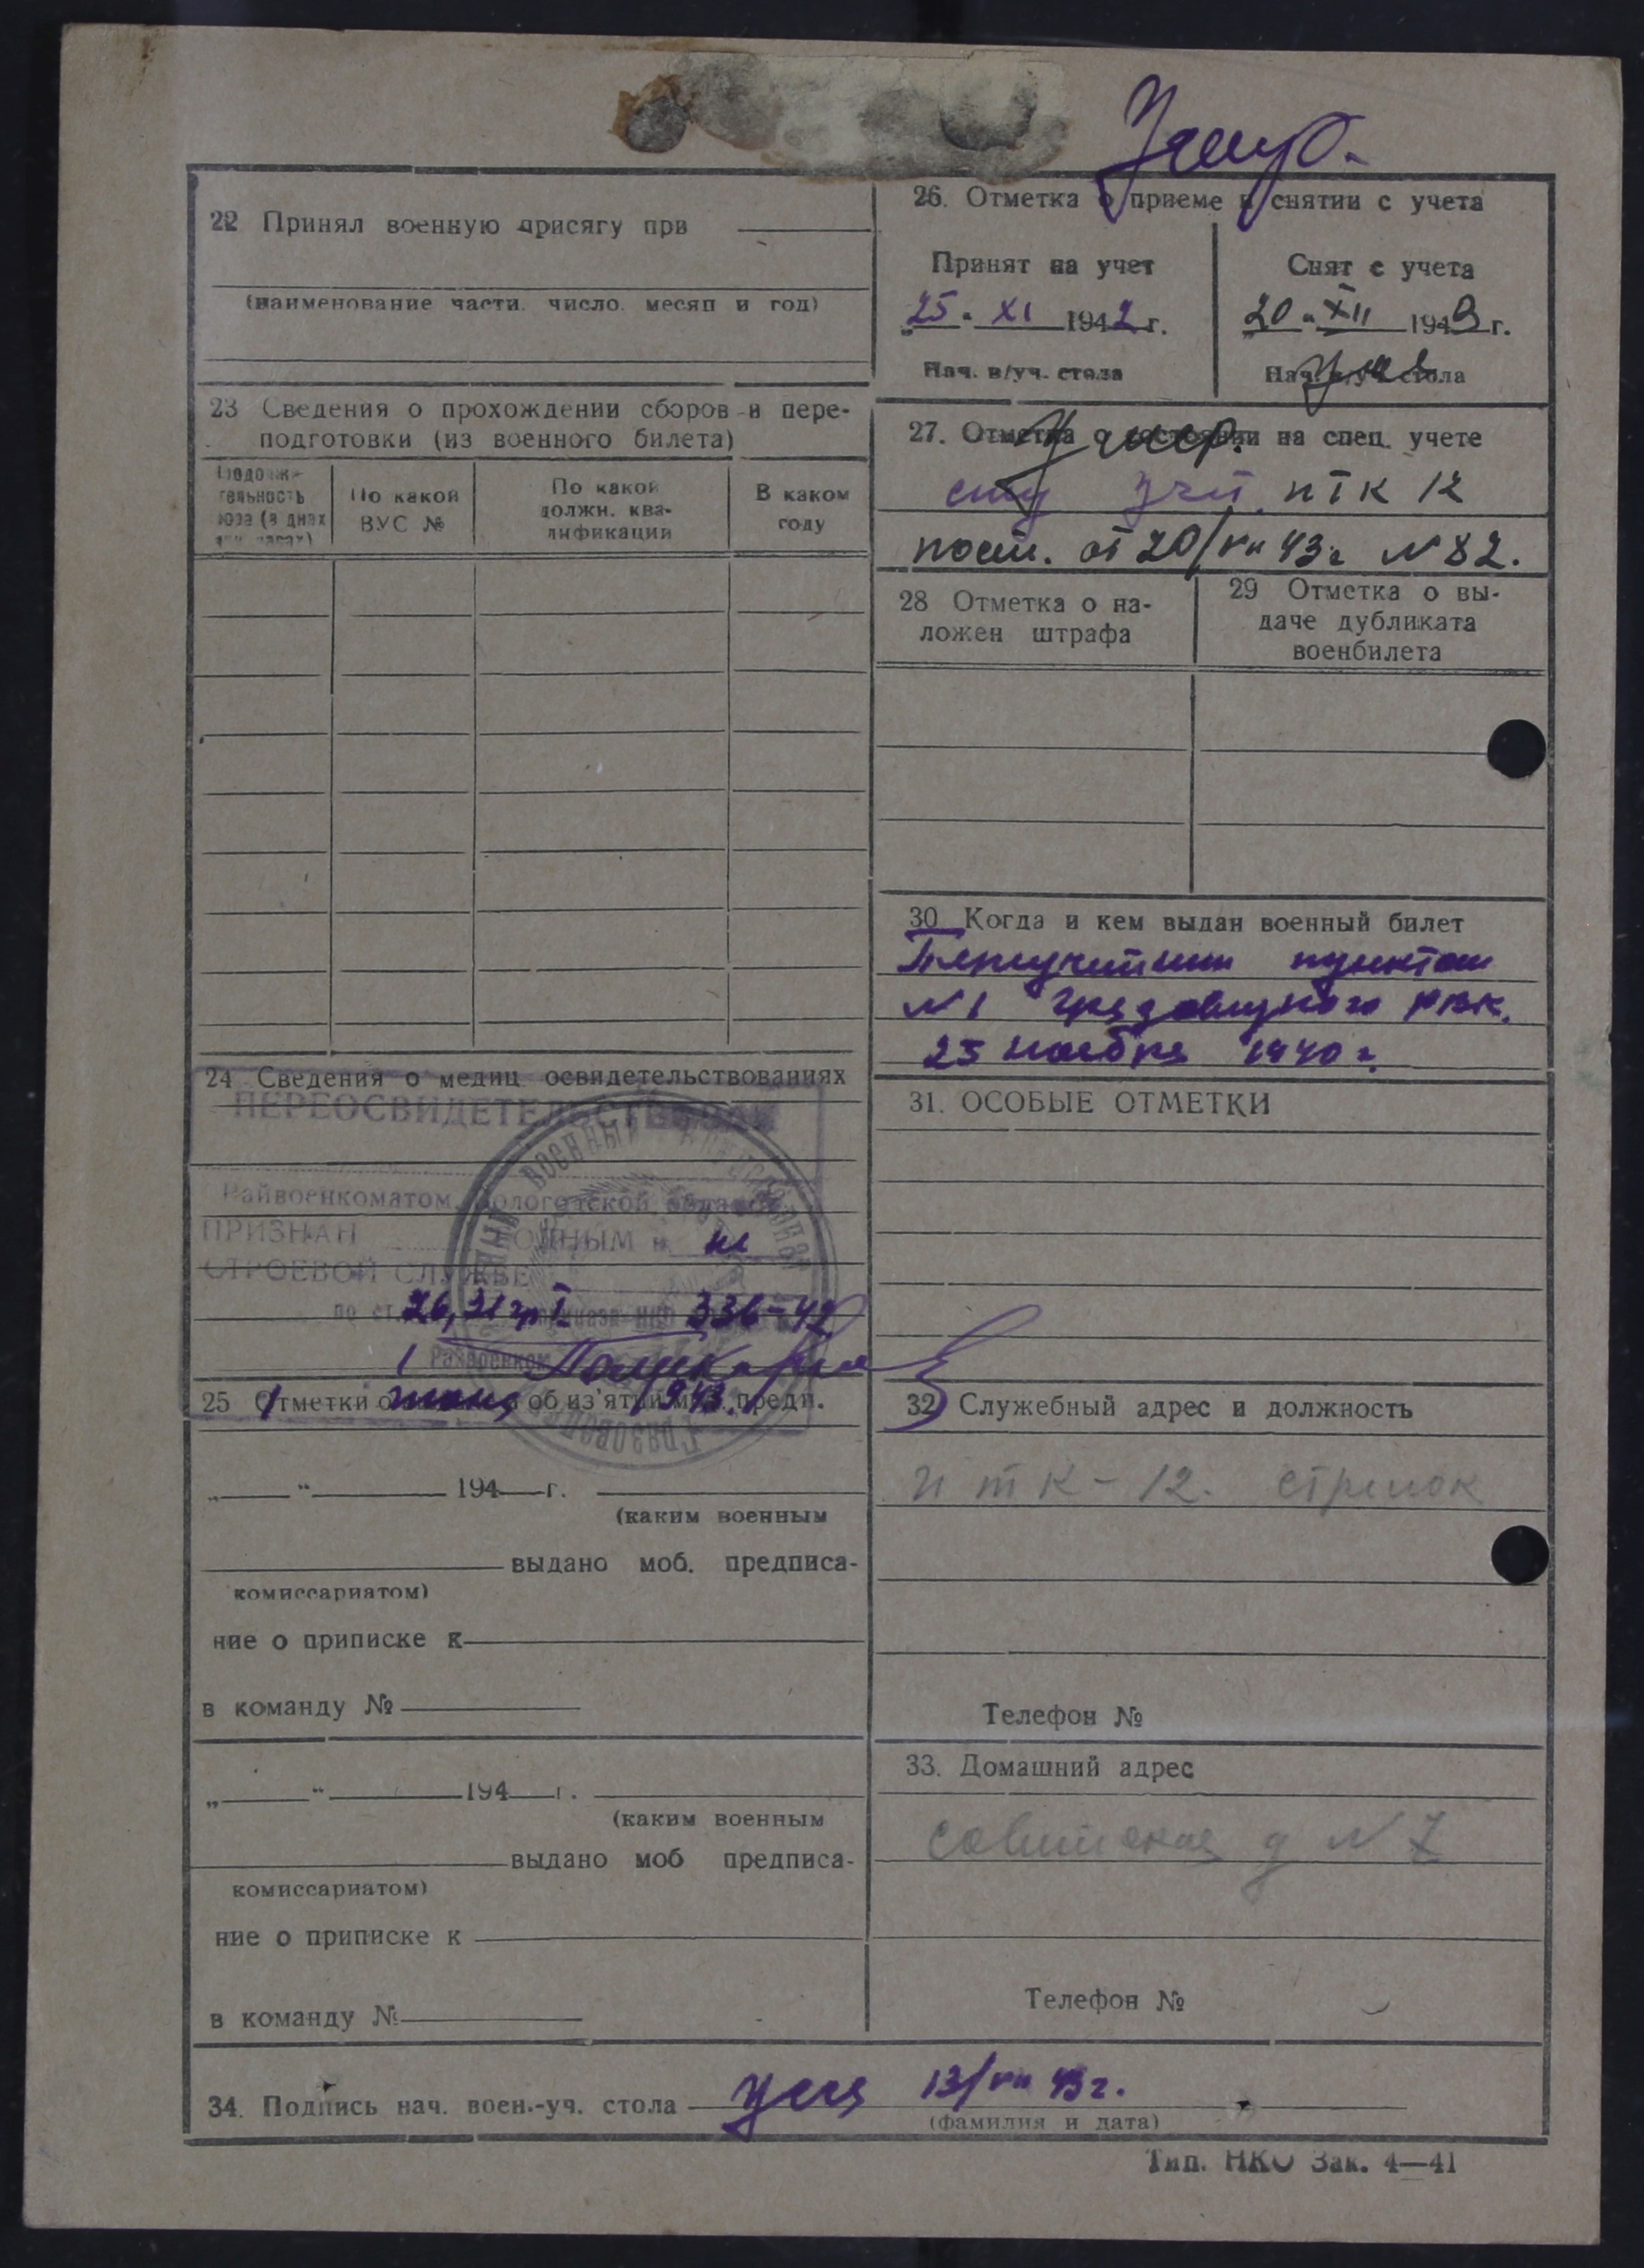 Умер.
22 Принял военную присягу при
(наименование части. число. месяц и год)
23 Сведения о прохождении сборов и пере-
подготовки (из военного билета)
Продолжи-
тельность
сбора (в днях
или часах)
По какой
ВУС №
По какой
должн. ква-
лификации
В каком
году
24 Сведения о медиц. освидетельствованиях
ПЕРЕОСВИДЕТЕЛЬСТВОВАН
Райвоенкоматом, Вологодской области
ПРИЗНАН ГОДНЫМ к не
СТРОЕВОЙ СЛУЖБЕ
по ст. 336-42
Райвоенком
25 Отметки об из'ятии моб. предп.
1943
„ “ 194 г.
(каким военным
выдано моб. предписа-
комиссариатом)
ние о приписке к
в команду №
„ “ 194 г.
(каким военным
выдано моб предписа-
комиссариатом)
ние о приписке к
в команду №
26. Отметка о приеме и снятии с учета
Принят на учет
„25“ XI 1942 г.
Нач. в/уч. стола
Снят с учета
„20“ XII 1943 г.
Нач. в/уч. стола
27. Отметка о состоянии на спец. учете
Умер.
учет. ИТК 12
пост. от 20/VII 43г № 82.
28 Отметка о на-
ложен штрафа
29 Отметка о вы-
даче дубликата
военбилета
30 Когда и кем выдан военный билет
пунктом
№1 Грязовецкого РВК.
25 ноября 1940 г.
31. ОСОБЫЕ ОТМЕТКИ
32 Служебный адрес и должность
ИТК-12. стрелок
Телефон №
33. Домашний адрес
Советская д №7
Телефон №
34. Подпись нач. воен.-уч. стола 13/VII 43г.
(фамилия и дата)
Тип. НКО Зак. 4—41